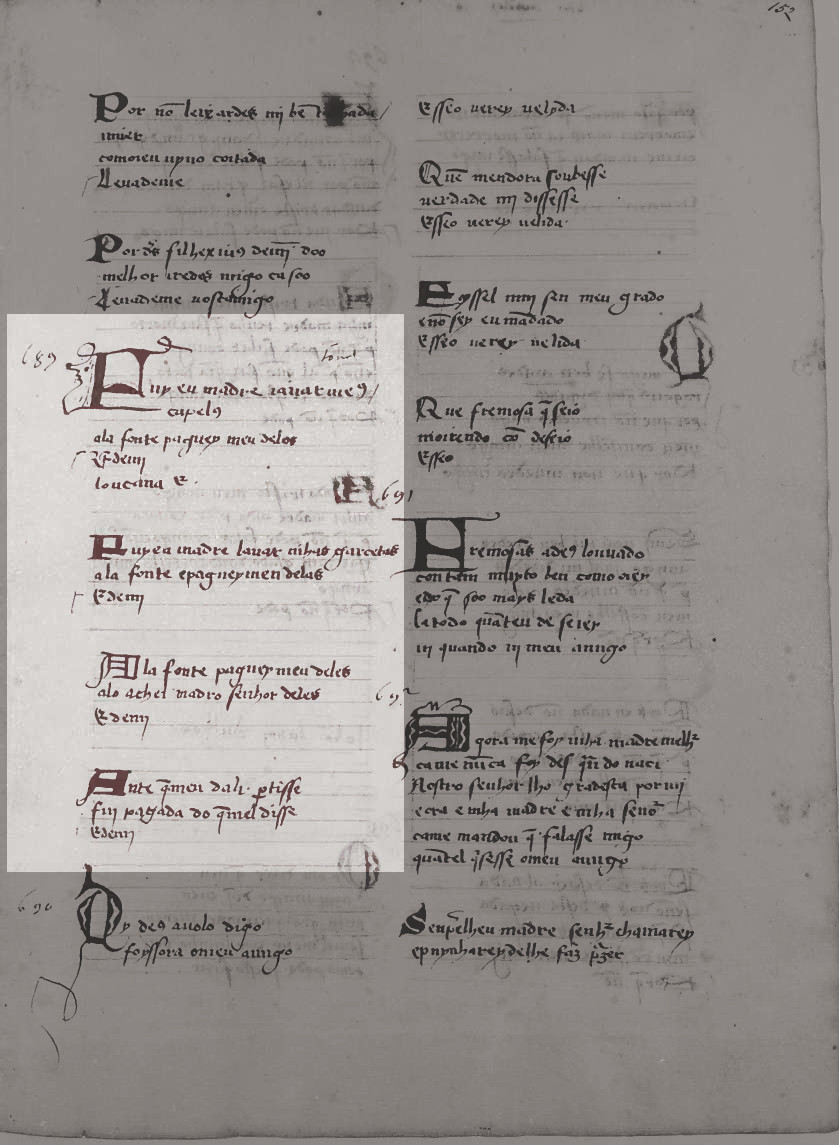 152
Por nõ leixardes mj bẽ
uiuer
comoieu uyuo coitada
Leuademe
Por d's filhexiu9 demj doo
melhor iredes migo ca soo
Leuademe uoscamigo
689
Fuy eu madre lauar meus /
capelos
ala fonte paguey meu delos
Edemj
loucana E.
Fuy eu madre lauar mhas garcetas
ala fonte epagueymeu delas
Edemj
Ala fonte paguey meu deles
alo achei madre senhor deles
Edemj
Ante q̃meu dali ꝑtisse
fuj pagada do q̃mel disse
Edemj
690
Ay deus auolo digo
foyssora omeu amigo
Esseo uerey uelyda
Quẽ mendora soubesse
uerdade mj dissesse
Esseo uerey uelida
Foyssel muj sen meu grado
enõ sey eu mãdado
Esseo uerey uelida
Que fremosa q̃ seio
moirendo cõ deseio
Esseo
691
Fremosas ades louuado
con tam muyto ben como oiey
edo q̃ soo mays leda
ca todo quãteu deseiey
uj quando uj meu amigo
692
Agora me foy mha madre melhr
ca me nũca foy des q̃ndo naci
Nostro senhor lho gradesca por mj
e ora e mha madre e mha senor
came mandou q̃ falasse migo
quãtel q̃sesse omeu amigo
Senp̃lheu madre senhr chamarey
epunharey delhe faz p̃zer